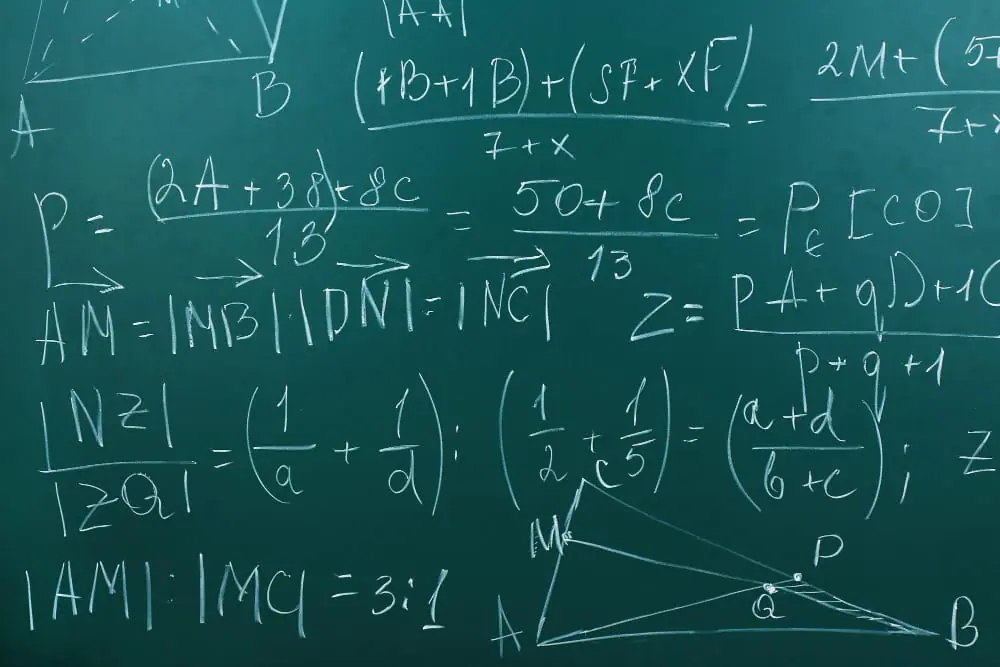 M
|AA|
A B
((1B+1B)+(5F+XF))/(7+x) = (2M+(5F
7+x
P = ((2A+38)+8c)/13 = (50+8c)/13 = P_ϵ [CO]
→AM = |→MB|:|→DN| = |→NC|
Z = (pA+qD+1C
p+q+1
|NZ|/|ZQ| = (1/a + 1/d) : (1/2 + 1/5) = ((a+d)/(b+c)); Z
|AM|:|MC| = 3:1
C
M
P
Q
A B